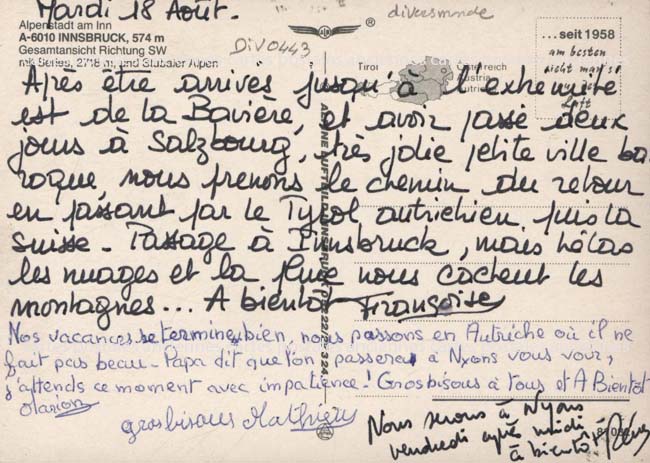 Mardi 18 Août.
Alpenstadt am Inn
A-6010 INNSBRUCK, 574 m
Gesamtansicht Richtung SW
mit Serles, 2718 m, und Stubaier Alpen
DIV0443
diversmonde
Tirol
Österreich
Austria
Autriche
...seit 1958
am besten
nicht man's
Luft
Après être arrivés jusqu'à l'extremité
est de la Bavière, et avoir passé deux
jours à Salzbourg, très jolie petite ville ba
roque, nous prenons le chemin du retour
en passant par le Tyrol autrichien puis la
Suisse - Passage à Innsbruck, mais hélas
les nuages et la pluie nous cachent les
montagnes... A bientôt Françoise
Nos vacances se termine bien, nous passons en Autriche où il ne
fait pas beau. Papa dit que l'on passeras à Nyons vous voir,
j'attends ce moment avec impatience! Gros bisous à tous et A Bientôt
Marion
gros bisous Mathieu
Nous serons à Nyons
vendredi après midi
à bientôt